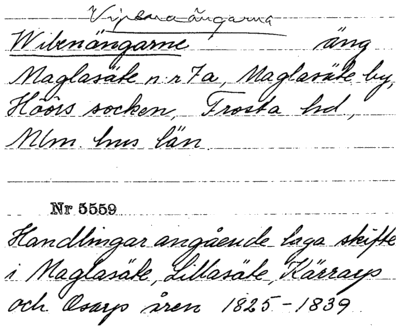 Vipenaängarna
Wibenängarne äng
Maglasäte n:r 7a, Maglasäte by,
Höörs socken, Frosta hd,
Mlm. hus län
Nr 5559
Handlingar angående laga skifte
i Maglasäte, Lillasäte, Kärrarp
och Osarp åren 1825-1839